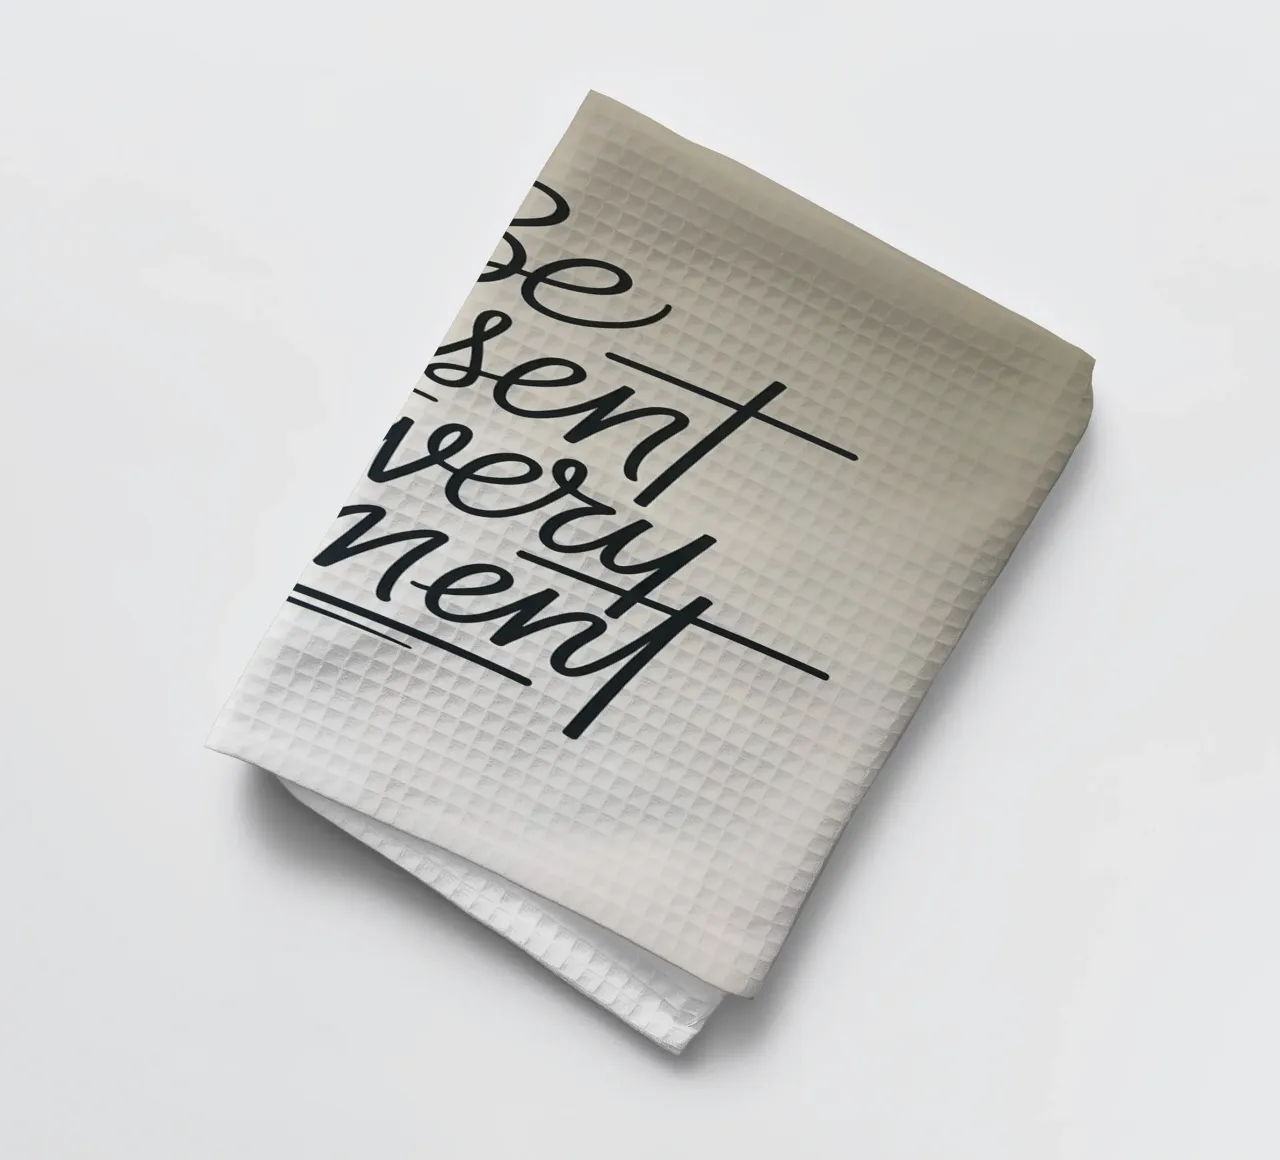 Be
sent
very
ment